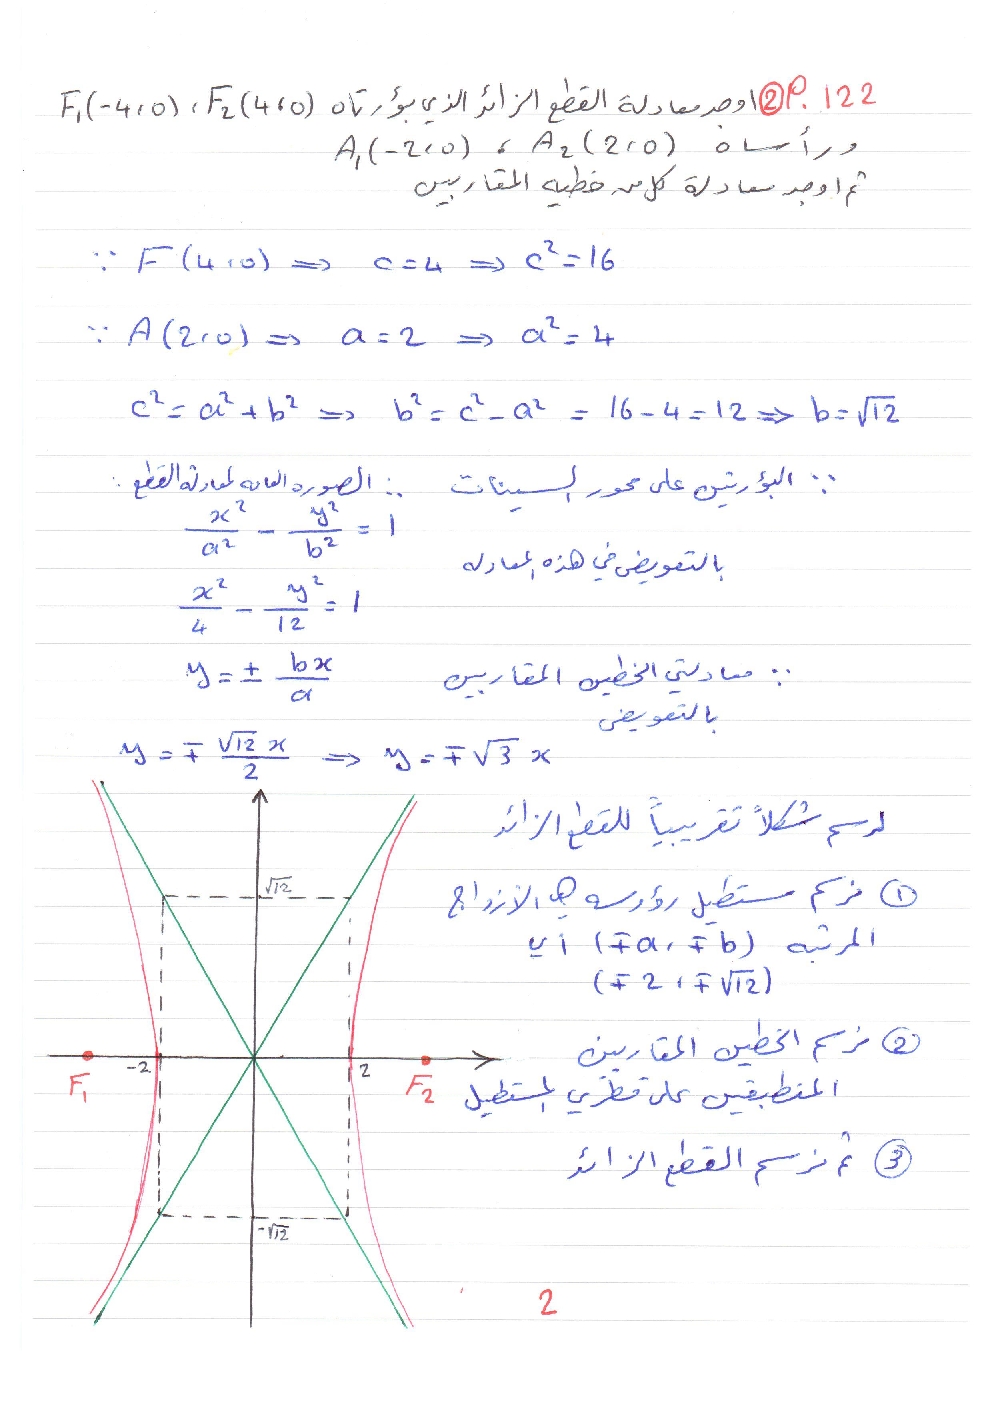 P. 122 ② اوجد معادلة القطع الزائد الذي بؤرتاه F₁(-4,0) ، F₂(4,0)
ورأساه A₁(-2,0) ، A₂(2,0)
ثم اوجد معادلة كل من خطيه المقاربين
∵ F(4,0) ⇒ c=4 ⇒ c²=16
∵ A(2,0) ⇒ a=2 ⇒ a²=4
c² = a² + b² ⇒ b² = c² - a² = 16 - 4 = 12 ⇒ b = √12
∵ البؤرتين على محور السينات ∴ الصورة العامه لمعادلة القطع :
x²/a² - y²/b² = 1
بالتعويض في هذه المعادله
x²/4 - y²/12 = 1
∵ معادلتي الخطين المقاربين y = ± bx/a
بالتعويض
y = ∓ √12 x/2 ⇒ y = ∓√3 x
لرسم شكلاً تقريبياً للقطع الزائد
① نرسم مستطيل رؤوسه هي الأزواج
المرتبه (∓a, ∓b) أي
(∓2, ∓√12)
② نرسم الخطين المقاربين
المنطبقين على قطري المستطيل
③ ثم نرسم القطع الزائد
√12
-2
2
F₁
F₂
-√12
2